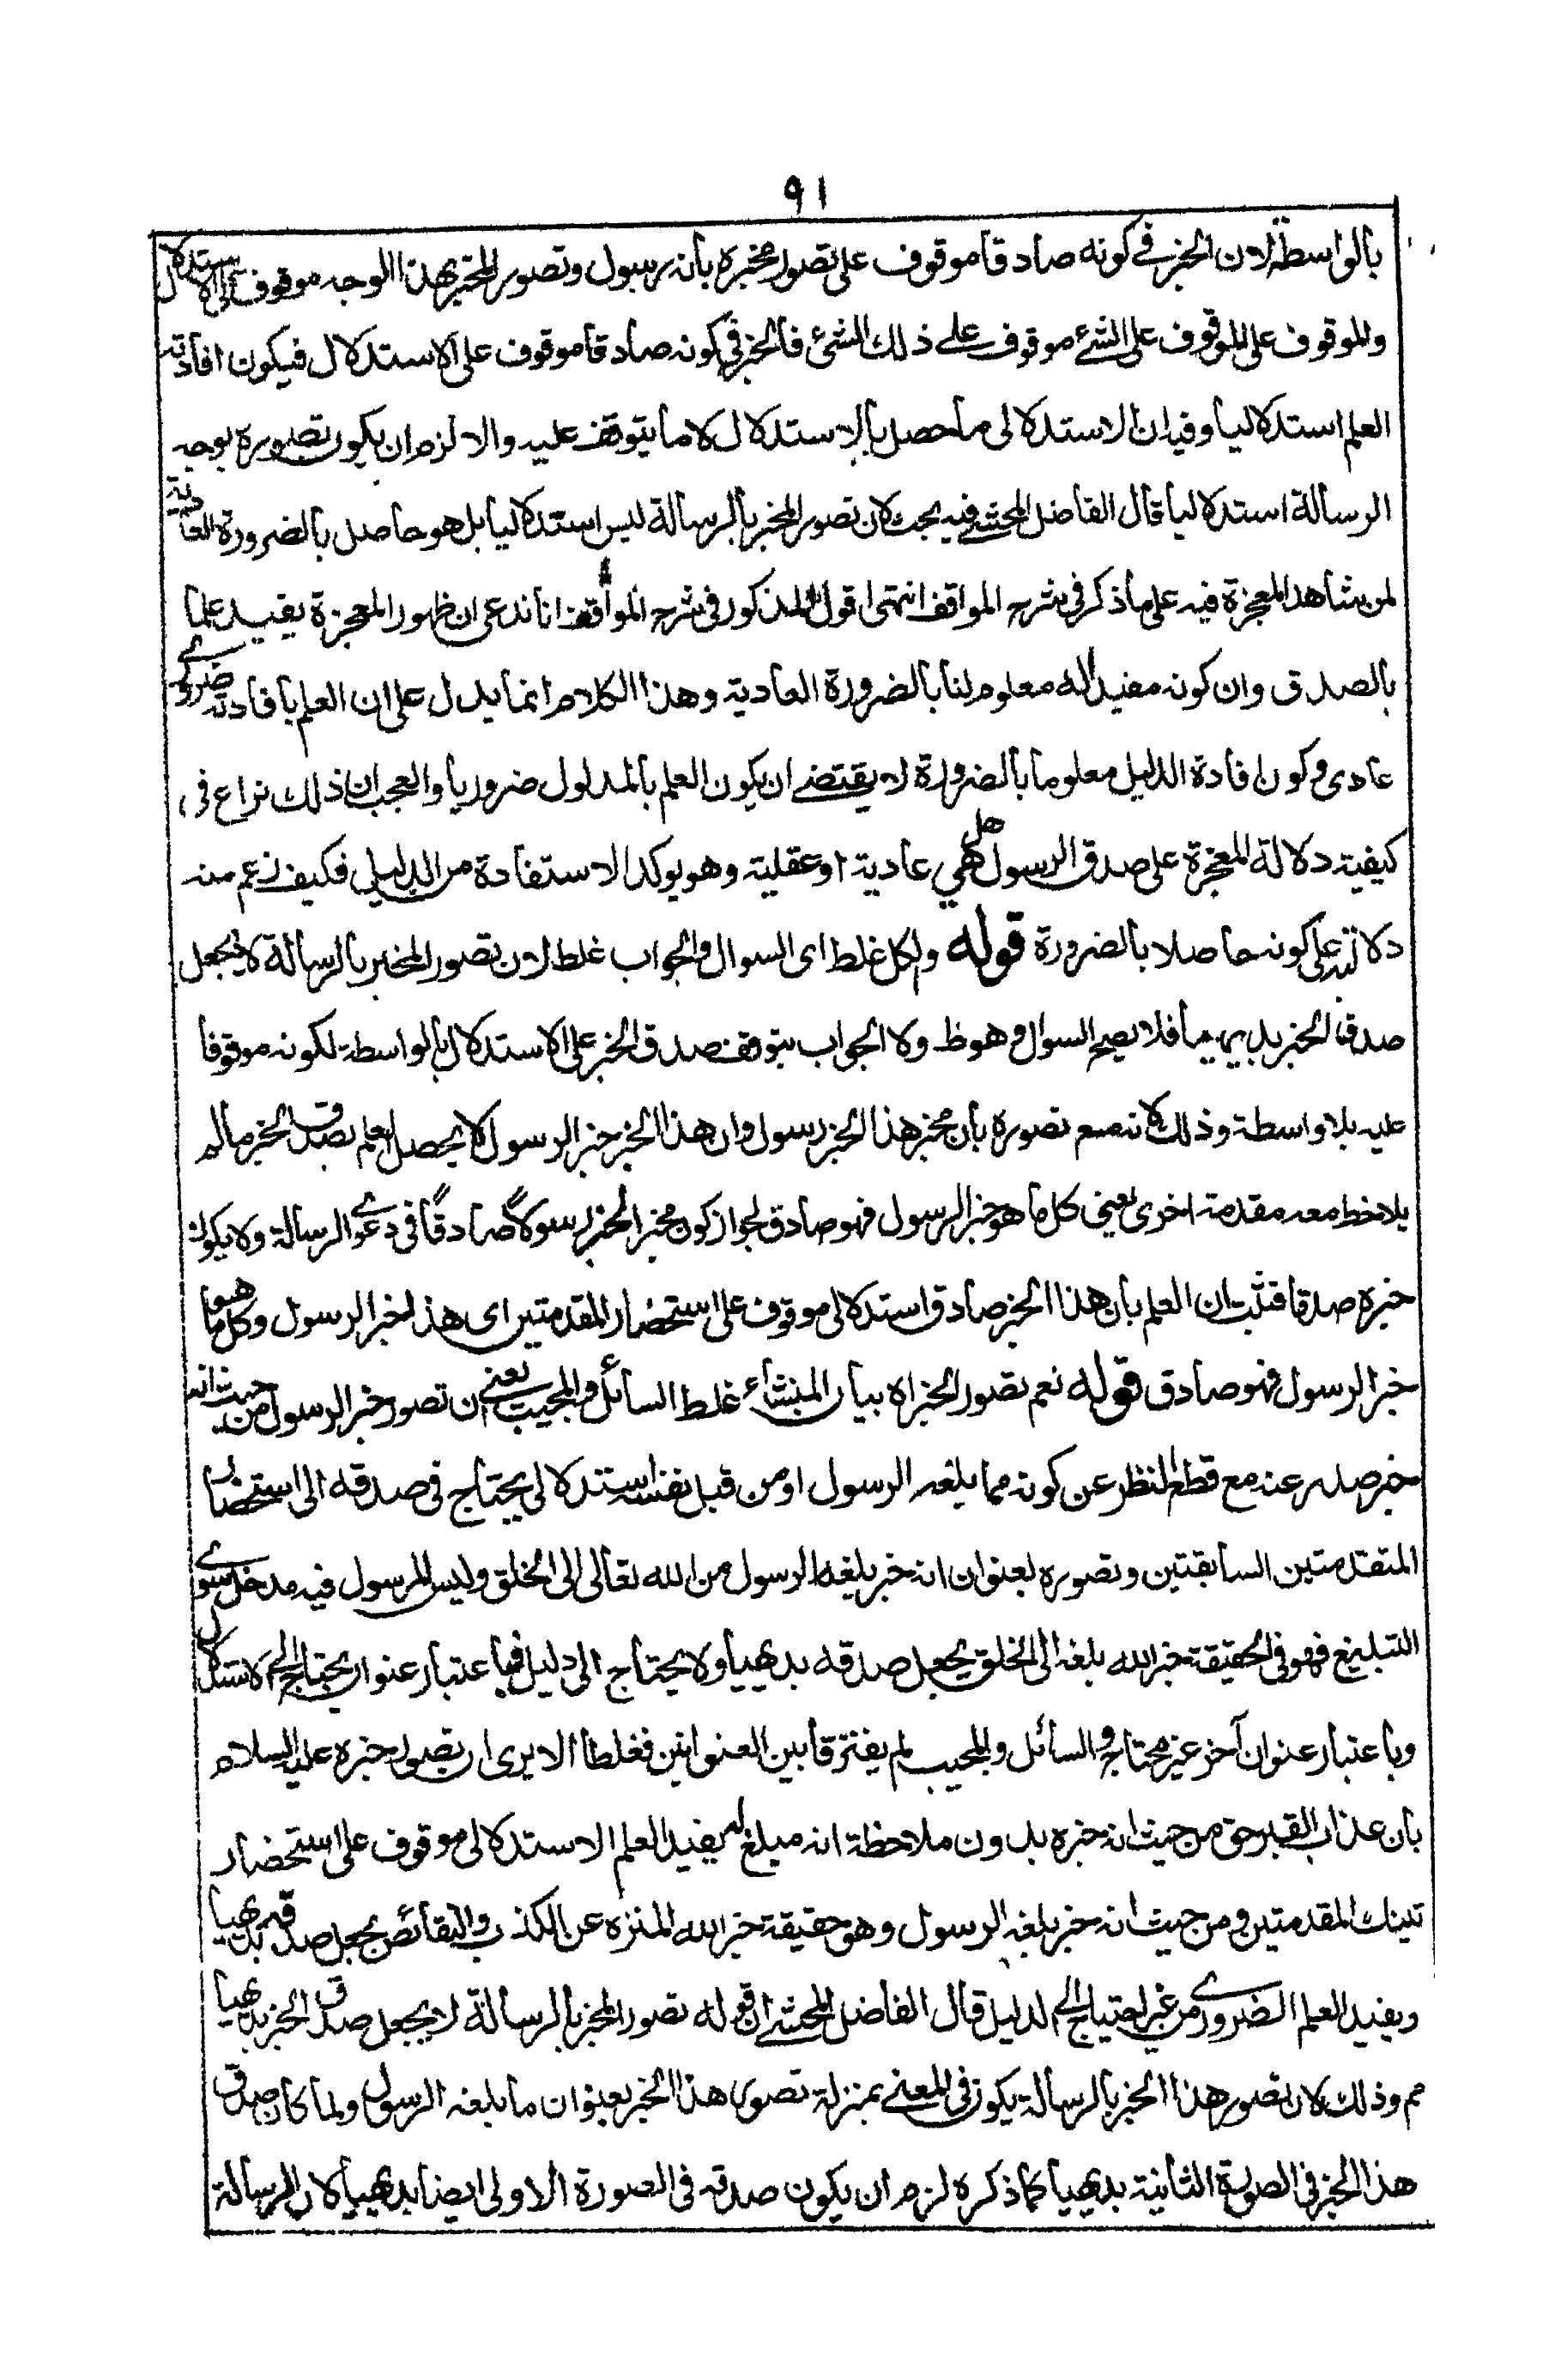 ٩١
بالواسطة لان الخبر في كونه صادقا موقوف على تصور مخبره بانه رسول وتصور المخبر بهذا الوجه موقوف على الاستدلال
والموقوف على الموقوف على الشئ موقوف على ذلك الشئ فالخبر في كونه صادقا موقوف على الاستدلال فيكون افادته
العلم استدلاليا وفيه ان الاستدلالى ما حصل بالاستدلال لا ما يتوقف عليه والا لزم ان يكون تصوره بوجه
الرسالة استدلاليا قال الفاضل المحشے فيه بحث لان تصور المخبر بالرسالة ليس استدلاليا بل هو حاصل بالضرورة العادية
لمن شاهد المعجزة فيه على ما ذكر فى شرح المواقف انتهى اقول المذكور فى شرح المواقف اناندعى ان ظهور المعجزة يفيد علما
بالصدق وان كونه مفيدا له معلوم لنا بالضرورة العادية وهذا الكلام انما يدل على ان العلم بافادته ضرورے
عادى وكون افادة الدليل معلوما بالضرورة لا يقتضے ان يكون العلم بالمدلول ضروريا والعجب ان ذلك نزاع فى
كيفية دلالة المعجزة على صدق الرسول هل هي عادية او عقلية وهو يوكد الاستفادة من الدليل فكيف زعم منه
دلالته على كونه حاصلا بالضرورة قوله والكل غلط اى السوال والجواب غلط لان تصور المخبر بالرسالة لا يجعل
صدق الخبر بديهيا فلا يصح السوال وهو ظ ولا الجواب بتوقف صدق الخبر على الاستدلال بالواسطة لكونه موقوفا
عليه بلا واسطة وذلك لانه مع تصوره بان مخبر هذا الخبر رسول وان هذا الخبر خبر الرسول لا يحصل العلم بصدق الخبر ما لم
يلاحظ معه مقدمة اخرى يعنى كل ما هو خبر الرسول فهو صادق لجواز كون مخبر الخبر رسولا صادقا فى دعوے الرسالة ولا يكون
خبره صدقا فثبت ان العلم بان هذا الخبر صادق استدلالى موقوف على استحضار المقدمتين اى هذا خبر الرسول وكل ما هو
خبر الرسول فهو صادق قوله نعم تصور الخبر اه بيان المنشاء غلط السائل والمجيب يعنے ان تصور خبر الرسول من حيث انه
خبر صدر عنه مع قطع النظر عن كونه مما بلغه الرسول او من قبل نفسه استدلالى يحتاج فى صدقه الى استحضار
المتقدمتين السابقتين وتصوره بعنوان انه خبر بلغه الرسول من الله تعالى الى الخلق وليس للرسول فيه مدخل سوے
التبليغ فهو فى الحقيقة خبر الله بلغه الى الخلق يجعل صدقه بديهيا ولا يحتاج الى دليل فباعتبار عنوان يحتاج الى الاستدلال
وباعتبار عنوان آخر غير محتاج والسائل والمجيب لم يفترقا بين العنوانين فغلطا الا يرى ان تصور خبره عليه السلام
بان عذاب القبر حق من حيث انه خبره بدون ملاحظة انه مبلغ له يفيد العلم الاستدلالى موقوف على استحضار
تينك المقدمتين ومن حيث انه خبر بلغه الرسول وهو حقيقة خبر الله المنزه عن الكذب والنقائص يجعل صدقه بديهيا
ويفيد العلم الضرورے من غير احتياج الى الدليل قال الفاضل المحشے ان قوله تصور المخبر بالرسالة لا يجعل صدق الخبر بديهيا
مم وذلك لان تصور هذا الخبر بالرسالة يكون فى المعنے بمنزلة تصور هذا الخبر بعنوان ما بلغه الرسول ولما كان صدق
هذا الخبر فى الصورة الثانية بديهيا كما ذكره لزم ان يكون صدقه فى الصورة الاولى ايضا بديهيا لان الرسالة